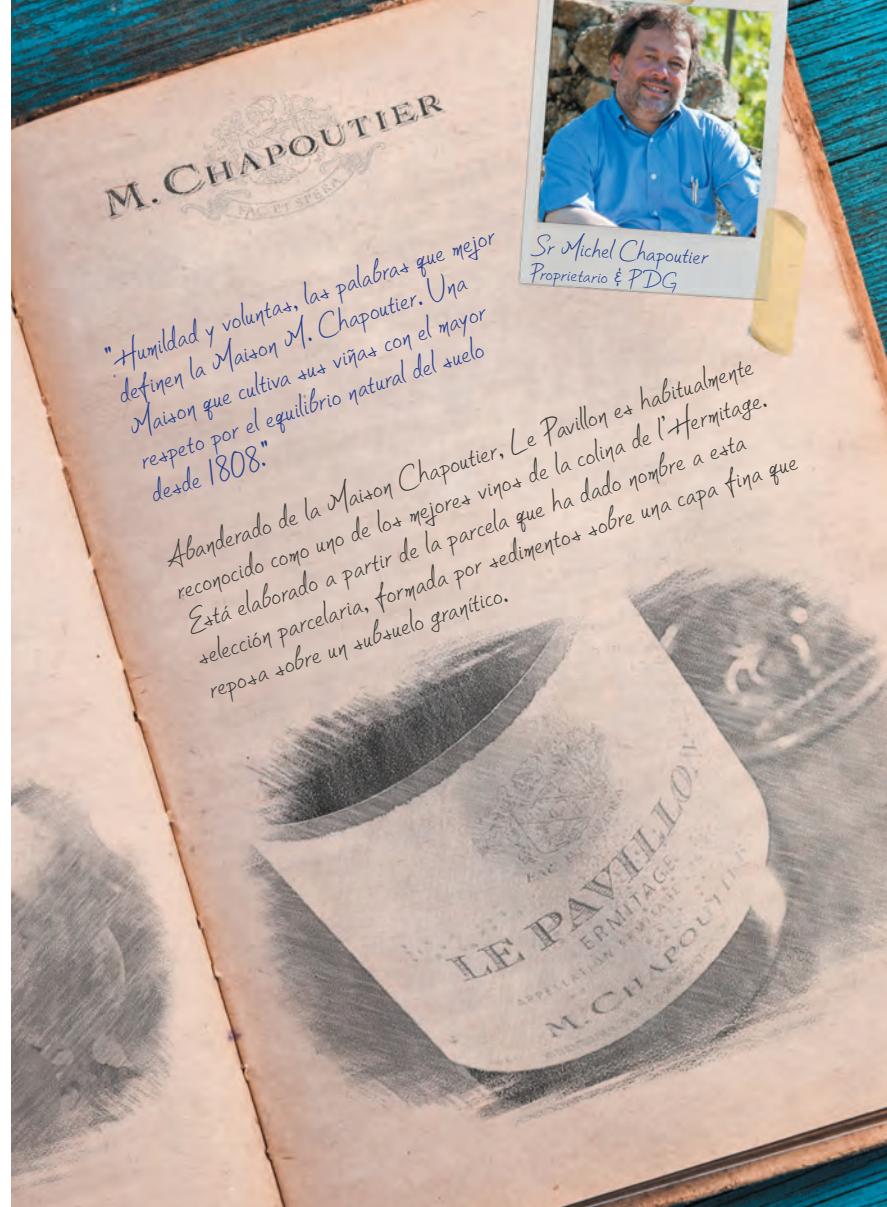 M. CHAPOUTIER
FAC ET SPERA
Sr Michel Chapoutier
Proprietario & PDG
"Humildad y voluntas, las palabras que mejor
definen la Maison M. Chapoutier. Una
Maison que cultiva sus viñas con el mayor
respeto por el equilibrio natural del suelo
desde 1808."
Abanderado de la Maison Chapoutier, Le Pavillon es habitualmente
reconocido como uno de los mejores vinos de la colina de l'Hermitage.
Está elaborado a partir de la parcela que ha dado nombre a esta
selección parcelaria, formada por sedimentos sobre una capa fina que
reposa sobre un subsuelo granítico.
LE PAVILLON
ERMITAGE
APPELLATION ERMITAGE
M. CHAPOUTIER